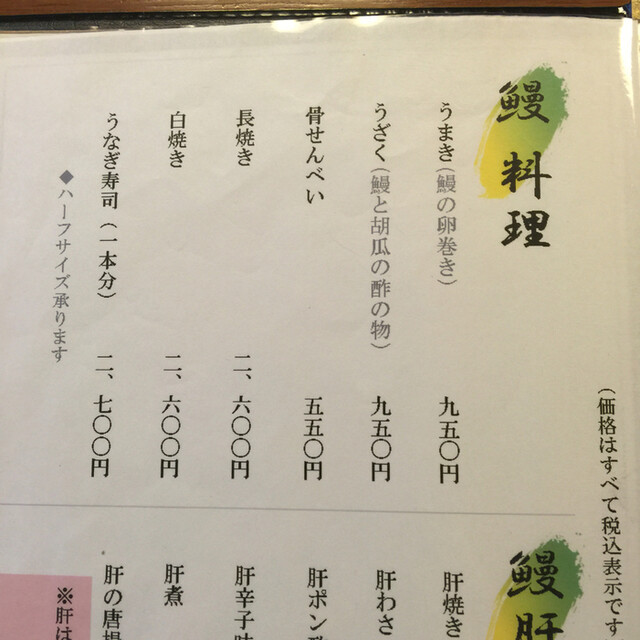 (価格はすべて税込表示です
鰻料理
うまき(鰻の卵巻き) 九五〇円
うざく(鰻と胡瓜の酢の物) 九五〇円
骨せんべい 五五〇円
長焼き 二、六〇〇円
白焼き 二、六〇〇円
うなぎ寿司(一本分) 二、七〇〇円
◆ハーフサイズ承ります
鰻肝
肝焼き
肝わさ
肝ポン酢
肝辛子味
肝煮
肝の唐揚
※肝は